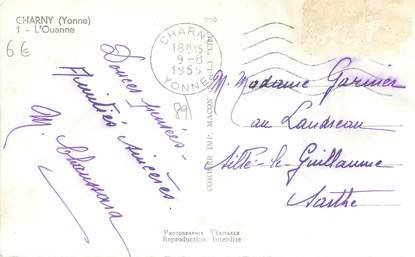 CHARNY (Yonne)
1 - L'Ouanne
6€
Douces pensées -
Amitiés sincères.
M.
CHARNY
18H15
9-8
1955
YONNE
89
COMBIER IMP. MACON
M. Madame Garnier
au Landreau
Sillé-le-Guillaume
Sarthe
PHOTOGRAPHIE VÉRITABLE
Reproduction Interdite